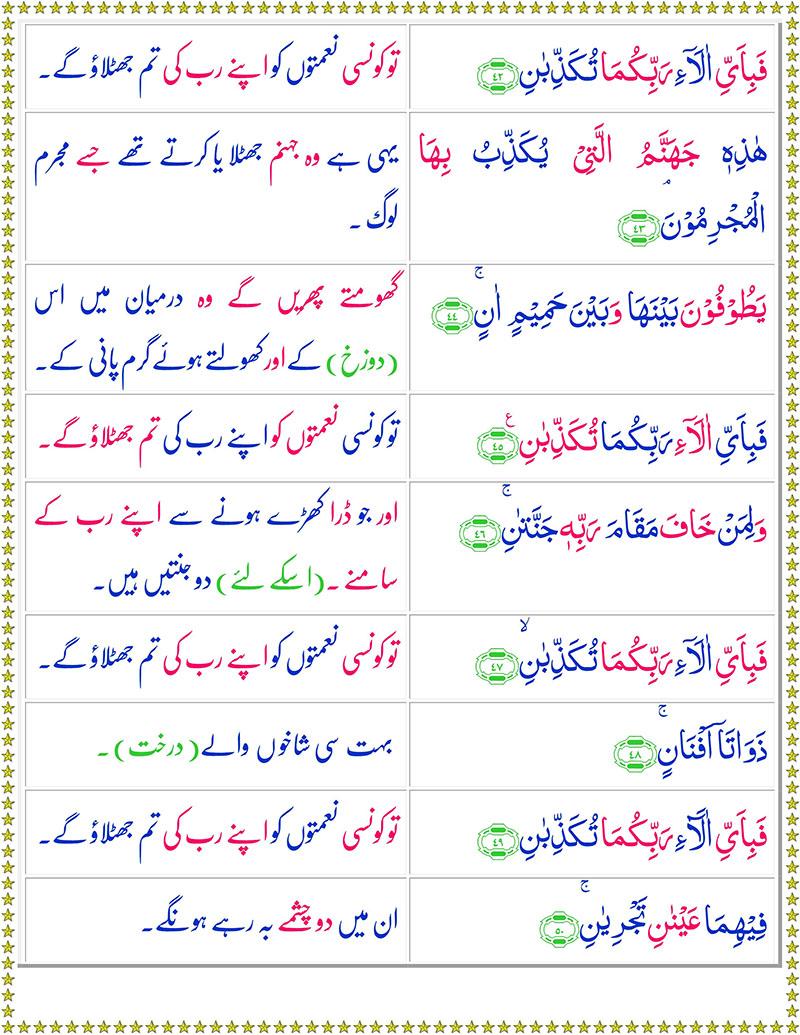 فَبِاَىِّ اٰلَآءِ رَبِّكُمَا تُكَذِّبٰنِ ﴿٤٢﴾
تو کونسی نعمتوں کو اپنے رب کی تم جھٹلاؤ گے۔
هٰذِهٖ جَهَنَّمُ الَّتِىْ يُكَذِّبُ بِهَا
الْمُجْرِمُوْنَ‌ۘ ﴿٤٣﴾
یہی ہے وہ جہنم جھٹلا یا کرتے تھے جسے مجرم
لوگ ۔
يَطُوْفُوْنَ بَيْنَهَا وَبَيْنَ حَمِيْمٍ اٰنٍ‌ۚ ﴿٤٤﴾
گھومتے پھریں گے وہ درمیان میں اس
(دوزخ) کے اور کھولتے ہوئے گرم پانی کے۔
فَبِاَىِّ اٰلَآءِ رَبِّكُمَا تُكَذِّبٰنِ ع ﴿٤٥﴾
تو کونسی نعمتوں کو اپنے رب کی تم جھٹلاؤ گے۔
وَلِمَنْ خَافَ مَقَامَ رَبِّهٖ جَنَّتٰنِ‌ۚ ﴿٤٦﴾
اور جو ڈرا کھڑے ہونے سے اپنے رب کے
سامنے ۔(اسکے لئے) دو جنتیں ہیں۔
فَبِاَىِّ اٰلَآءِ رَبِّكُمَا تُكَذِّبٰنِۙ ﴿٤٧﴾
تو کونسی نعمتوں کو اپنے رب کی تم جھٹلاؤ گے۔
ذَوَاتَاۤ اَفْنَانٍ‌ۚ ﴿٤٨﴾
بہت سی شاخوں والے (درخت)۔
فَبِاَىِّ اٰلَآءِ رَبِّكُمَا تُكَذِّبٰنِ ﴿٤٩﴾
تو کونسی نعمتوں کو اپنے رب کی تم جھٹلاؤ گے۔
فِيْهِمَا عَيْنٰنِ تَجْرِيٰنِ‌ۚ ﴿٥٠﴾
ان میں دو چشمے بہ رہے ہونگے۔